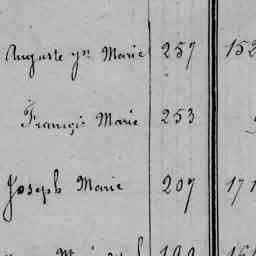 Auguste yves Marie 257 152
François Marie 253
Joseph Marie 207 171